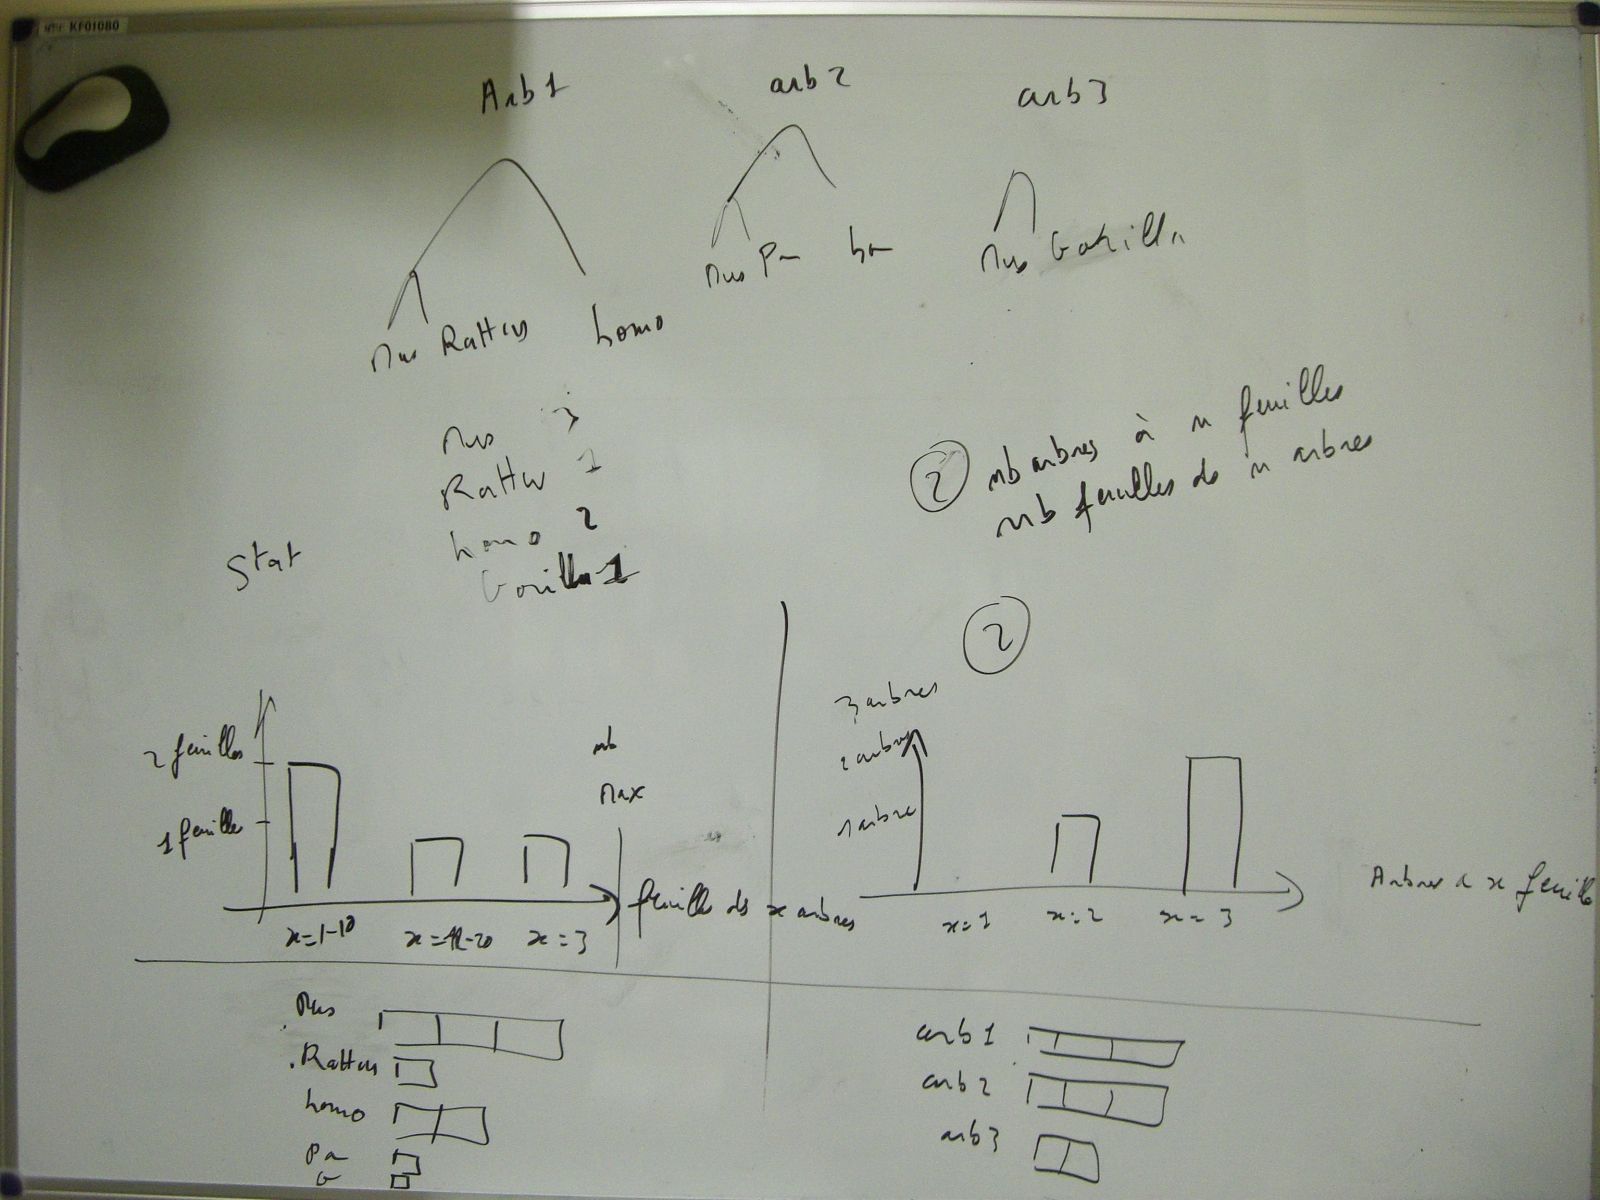 KF01080
Arb1 arb2 arb3
Mus Rattus homo
Mus Pan ho
Mus Gorilla
Mus 3
Rattus 1
homo 2
Gorilla 1
Stat
2 nb arbres à n feuilles
nb feuilles ds n arbres
2 feuilles
1 feuille
x=1-10 x=11-20 x=3
nb
Max
feuilles ds x arbres
2
3 arbres
2 arbres
1 arbre
x=1 x=2 x=3
Arbres à x feuilles
Mus
Rattus
homo
Pan
G
arb1
arb2
arb3